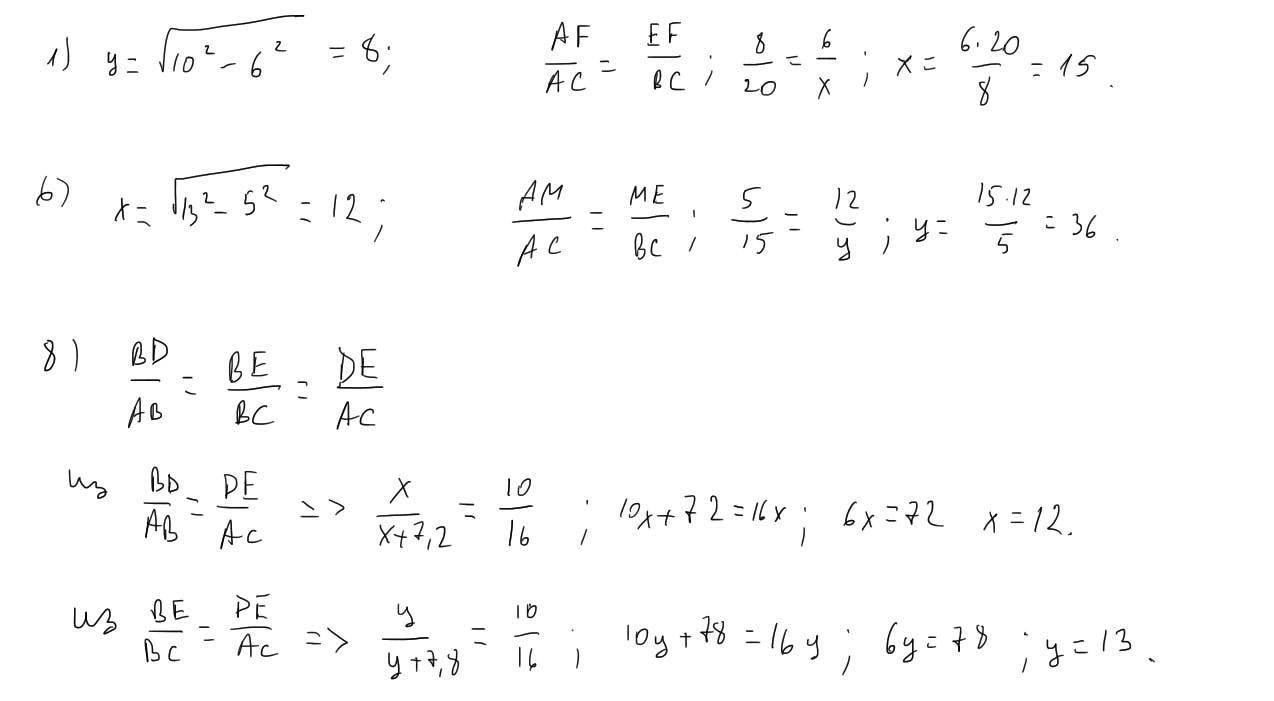 1) y = √(10² − 6²) = 8; AF/AC = EF/BC; 8/20 = 6/x; x = 6·20/8 = 15.
6) x = √(13² − 5²) = 12; AM/AC = ME/BC; 5/15 = 12/y; y = 15·12/5 = 36.
8) BD/AB = BE/BC = DE/AC
из BD/AB = DE/AC => x/(x+7,2) = 10/16; 10x+72=16x; 6x=72 x=12.
из BE/BC = DE/AC => y/(y+7,8) = 10/16; 10y+78=16y; 6y=78; y=13.